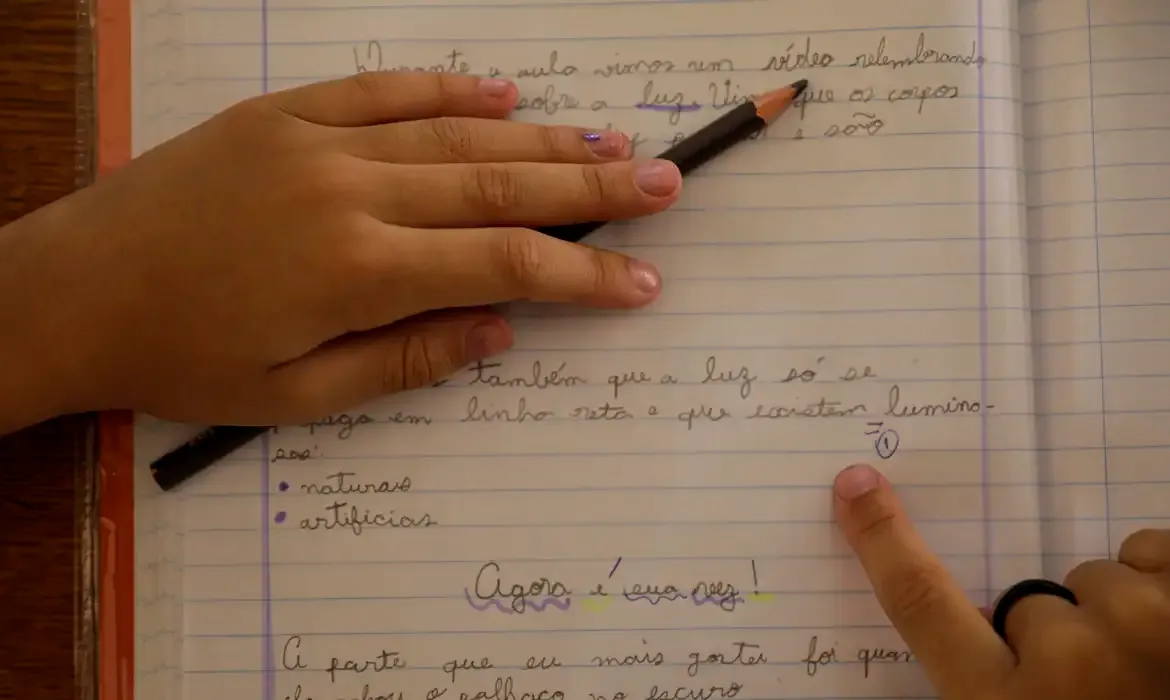 Durante a aula vimos um vídeo relembrando
sobre a luz. que os corpos
e são
também que a luz só se
em linha reta e que existem lumino-
sos:
• naturais
• artificias
1
Agora é sua vez!
A parte que eu mais gostei foi
o palhaço no escuro